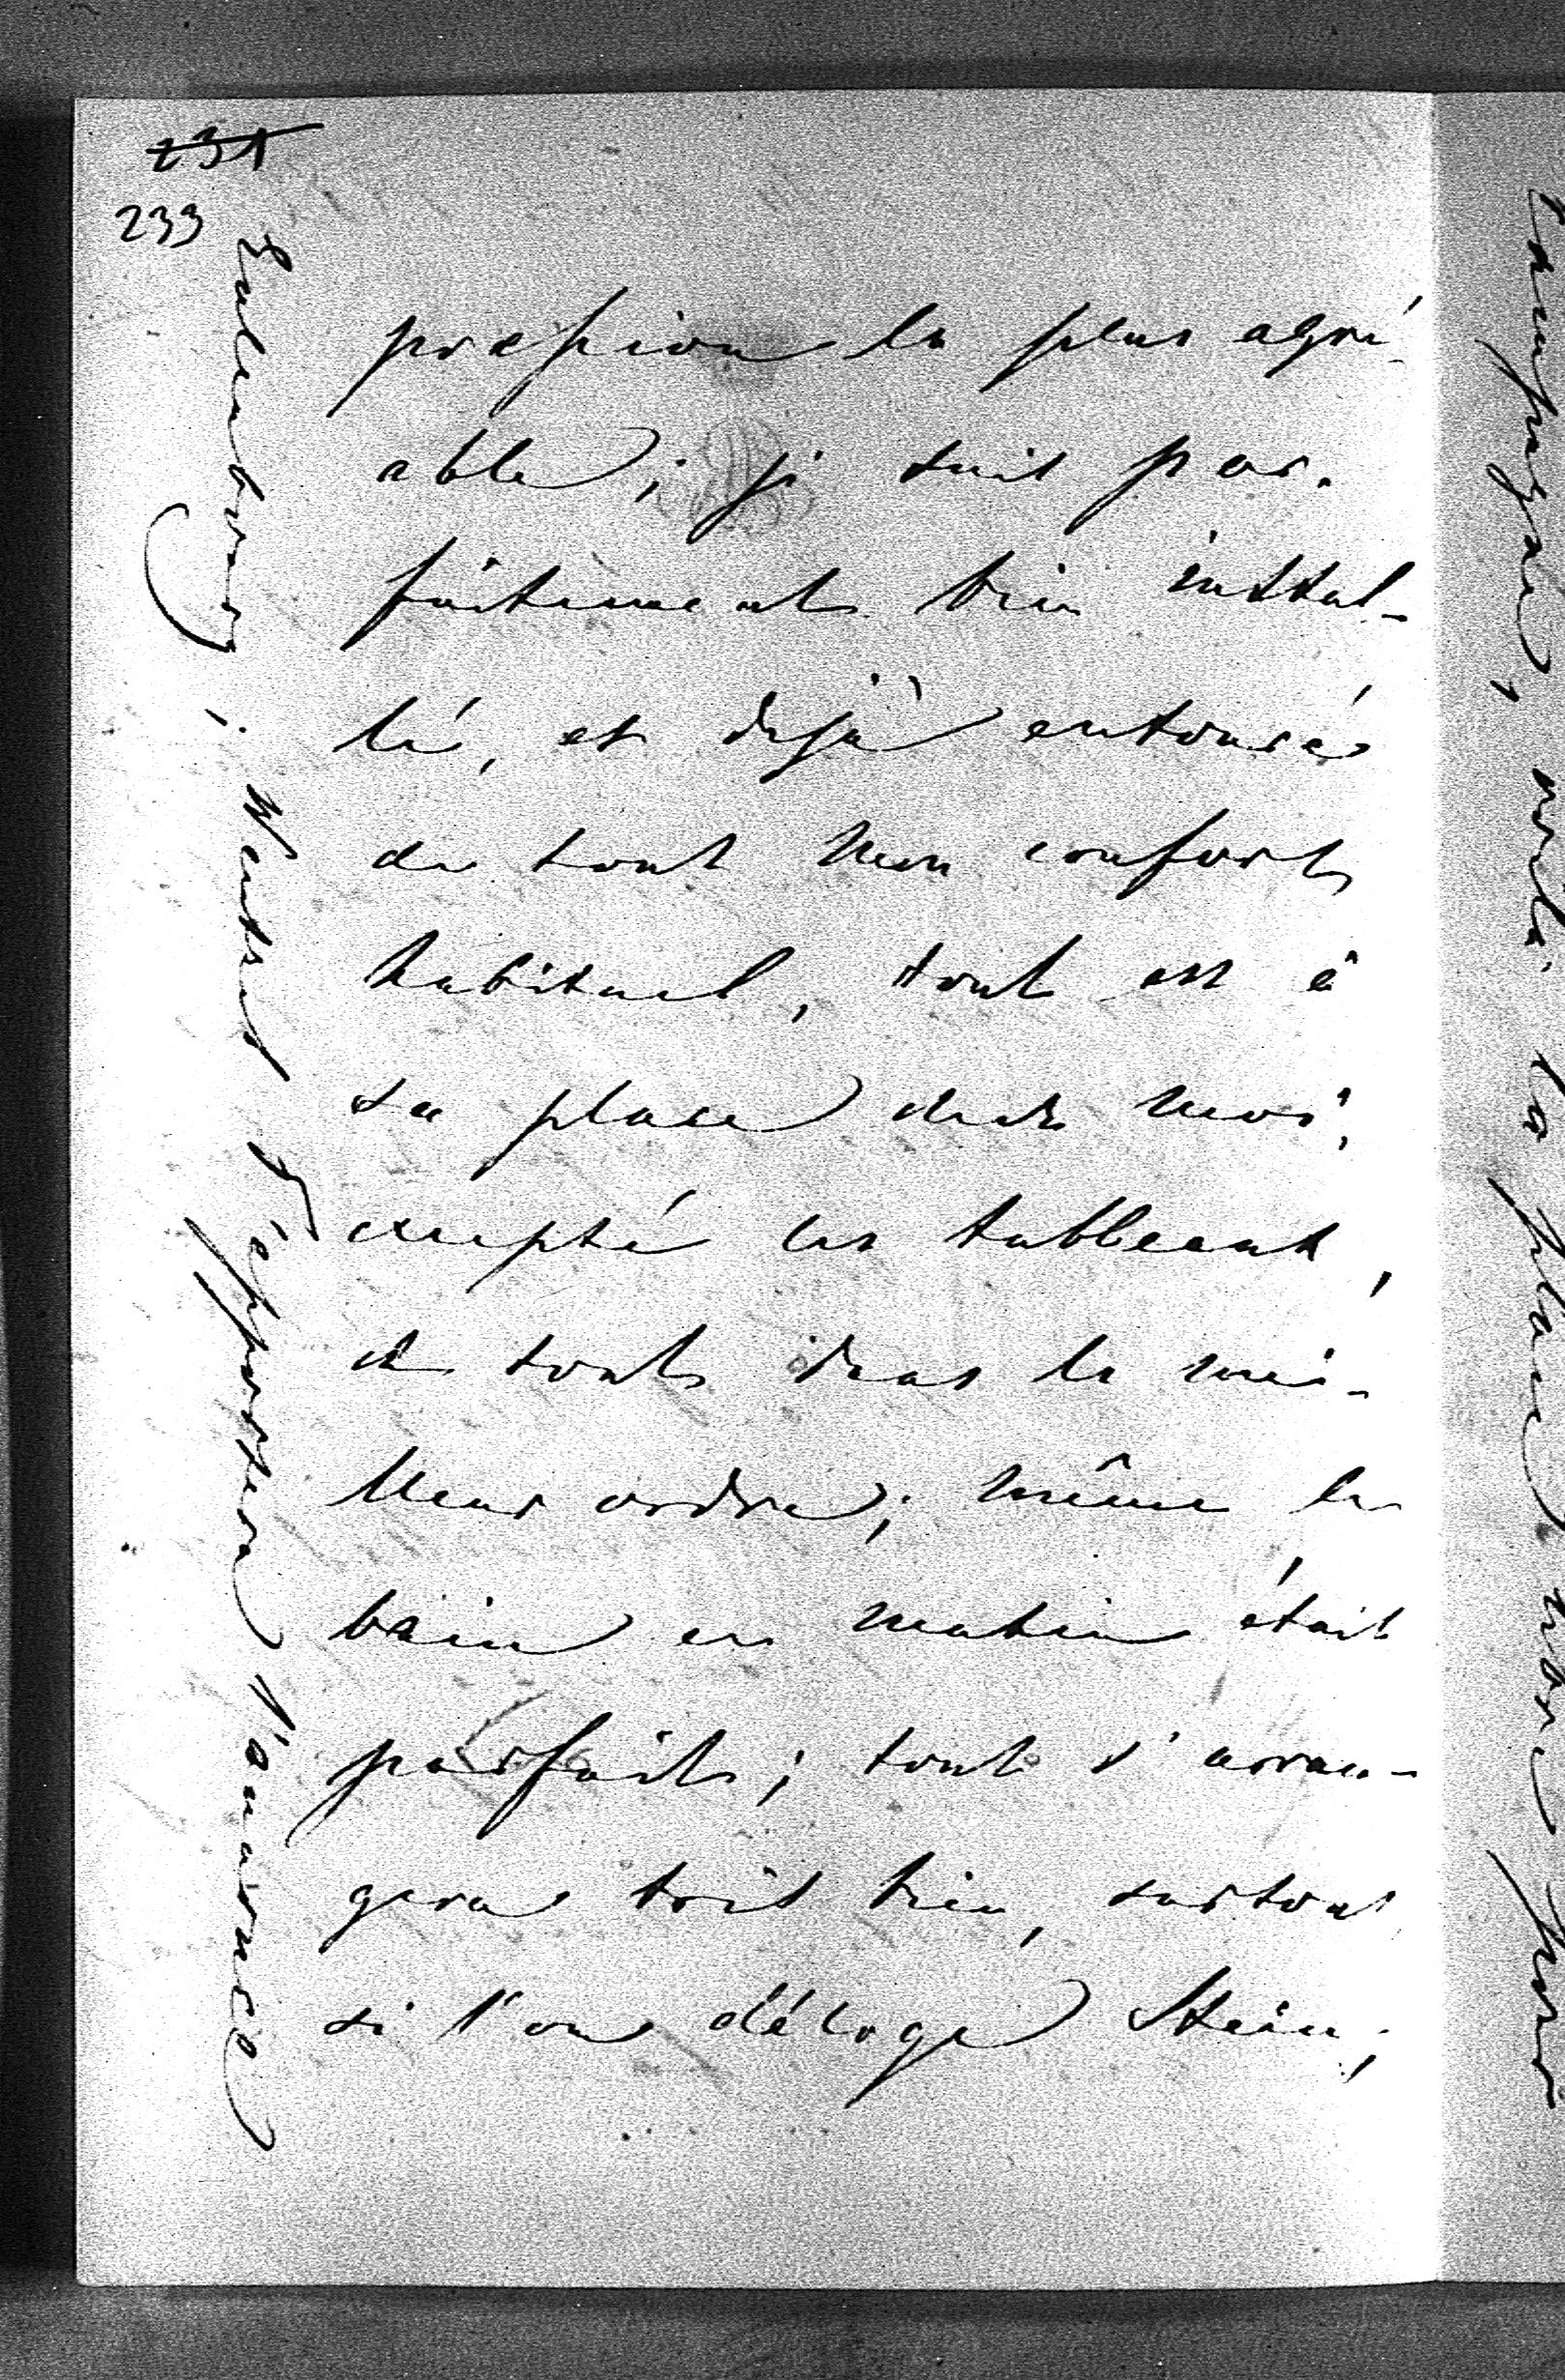 231
233
pression la plus agré-
able; je suis par-
faitement bien instal-
lé, et dejà entouré
de tout mon confort
habituel, tout est à
sa place chez moi,
excepté les tableaux,
et tout dans le mei-
lleur ordre; même le
bain ce matin était
parfait; tout s'arran-
gera très bien, surtout
si l'on déloge Stein;
Eulenbourg; Wentzel t'apportera l'annonce
campagne, voilà la plus